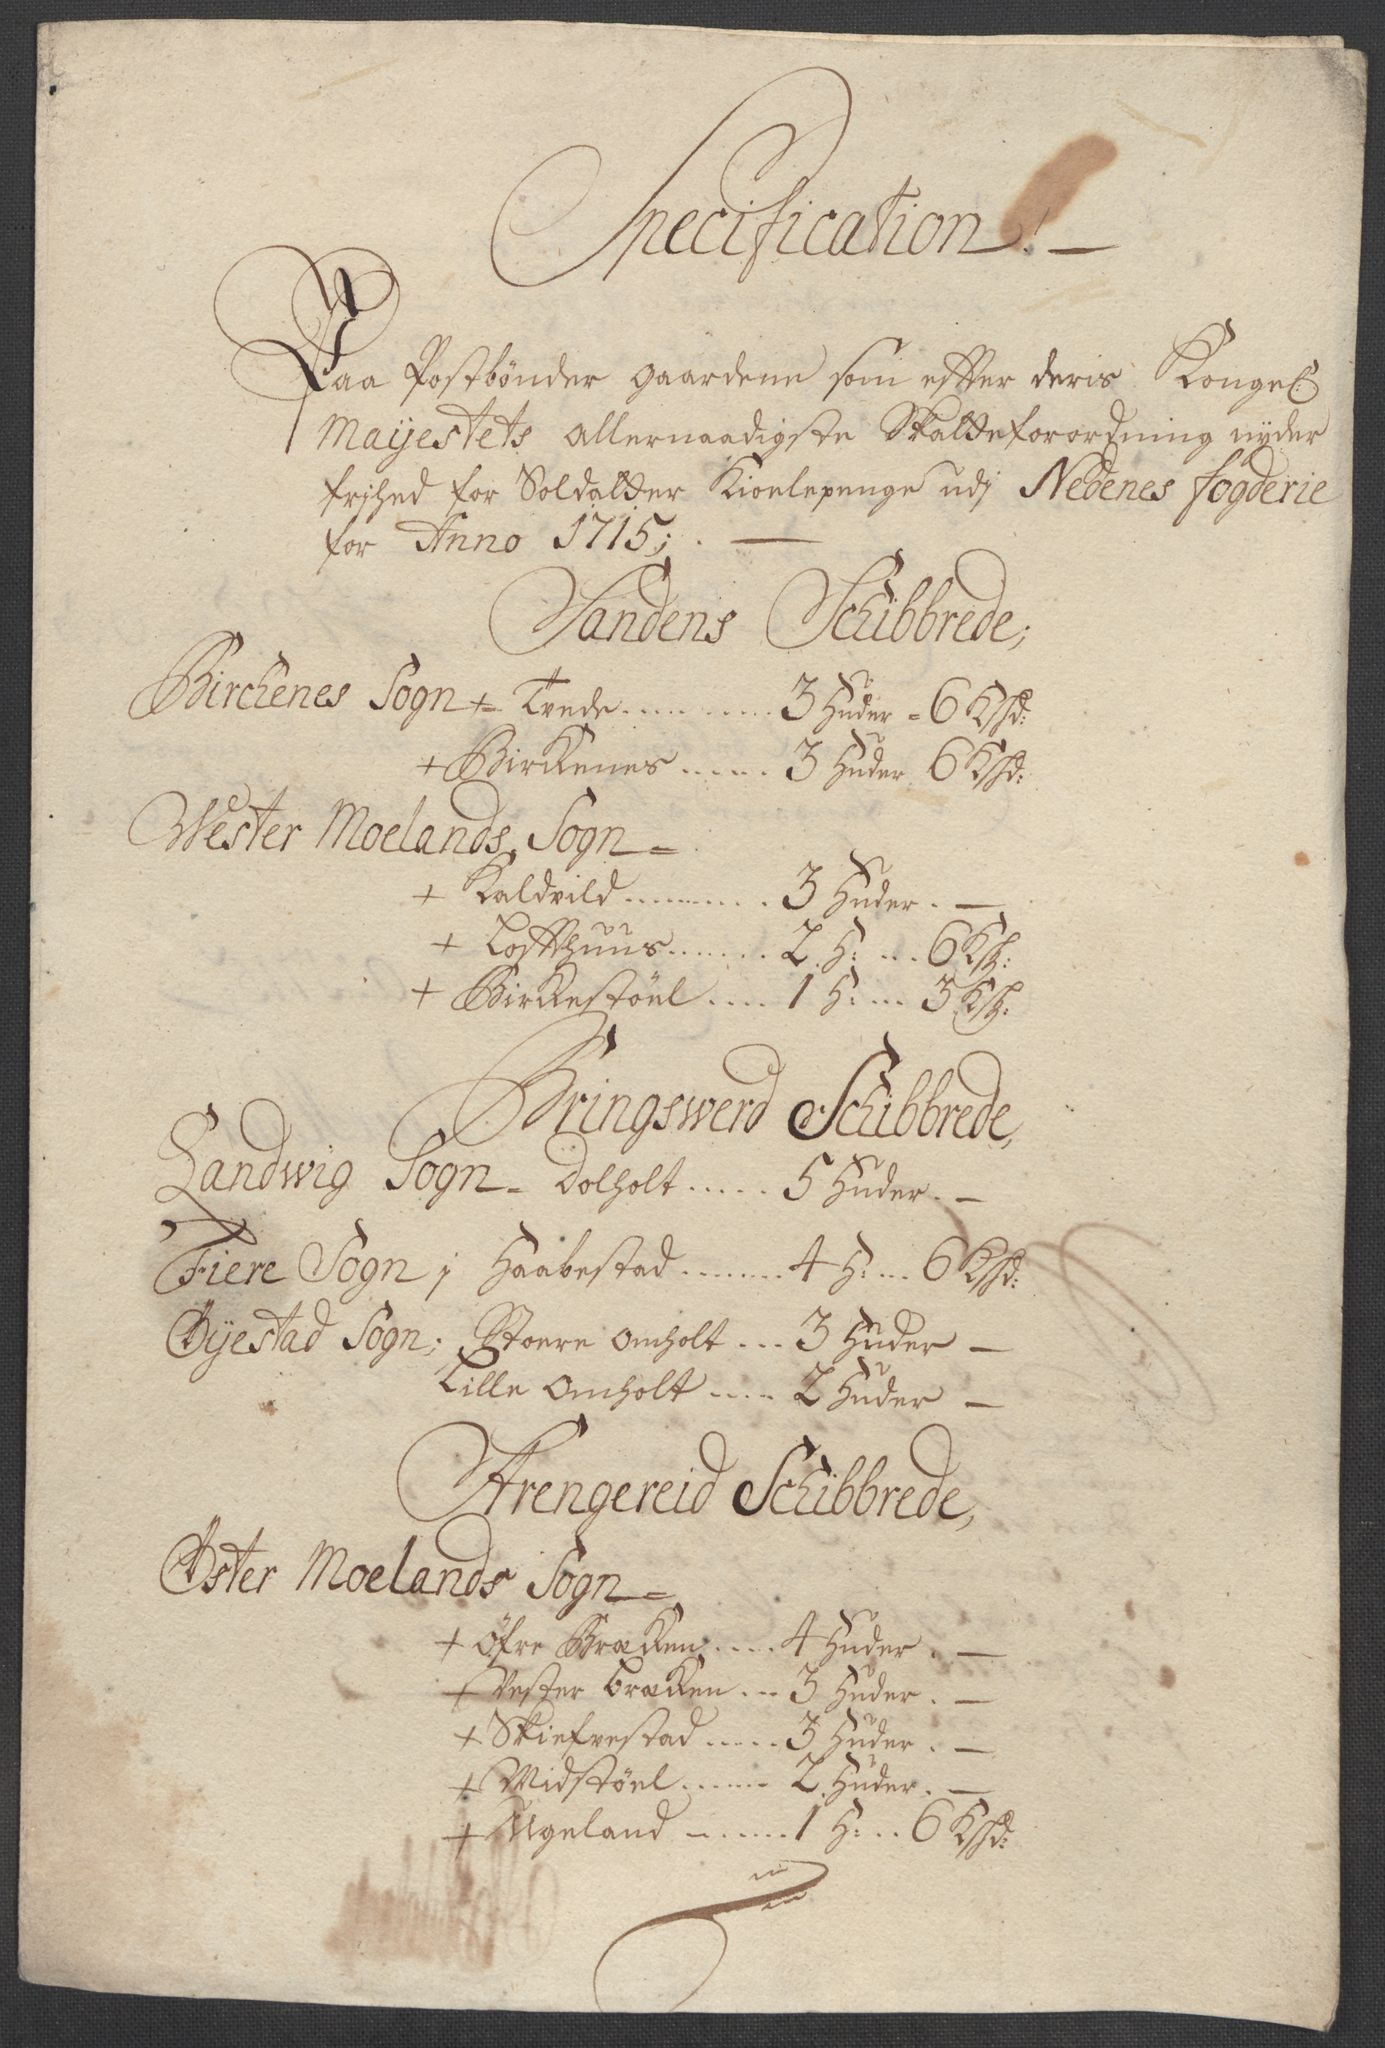 Specification. —
Paa Postbönder gaardene som efter deris Kongel:
Maijestets allernaadigste Skatteforordning nyder
frjhed for Soldatter Kiolepenge udj Nedenes fogderie
for Anno 1715; . —
Sandens Schibbrede;
Birchenes Sogn + Tvede ......... 3 Huder = 6 Ksd:
+ Birkenes ...... 3 Huder 6 Ksd:
Wester Moelands Sogn =
+ Kaldvild ......... 3 Huder . —
+ Loffthuus ....... 2 H: ... 6 Ks:
+ Birkestöel .... 1 H: ... 3 Ks:
Bringswerd Schibbrede,
Landwig Sogn = Dolholt ..... 5 Huder. —
Fiere Sogn ; Haabestad ....... 4 H: ... 6 Ksd:
Öyestad Sogn; Stoere Omholt ... 3 Huder —
Lille Omholt .... 2 Huder —
Arengereid Schibbrede,
Öster Moelands Sogn =
+ Öfre Brækken .... 4 Huder . —
+ Vester brækken ... 3 Huder . —
+ Skiefvestad ..... 3 Huder . —
+ Midstöel ...... 2 Huder . —
+ Ugeland ....... 1 H: .. 6 Ksd: